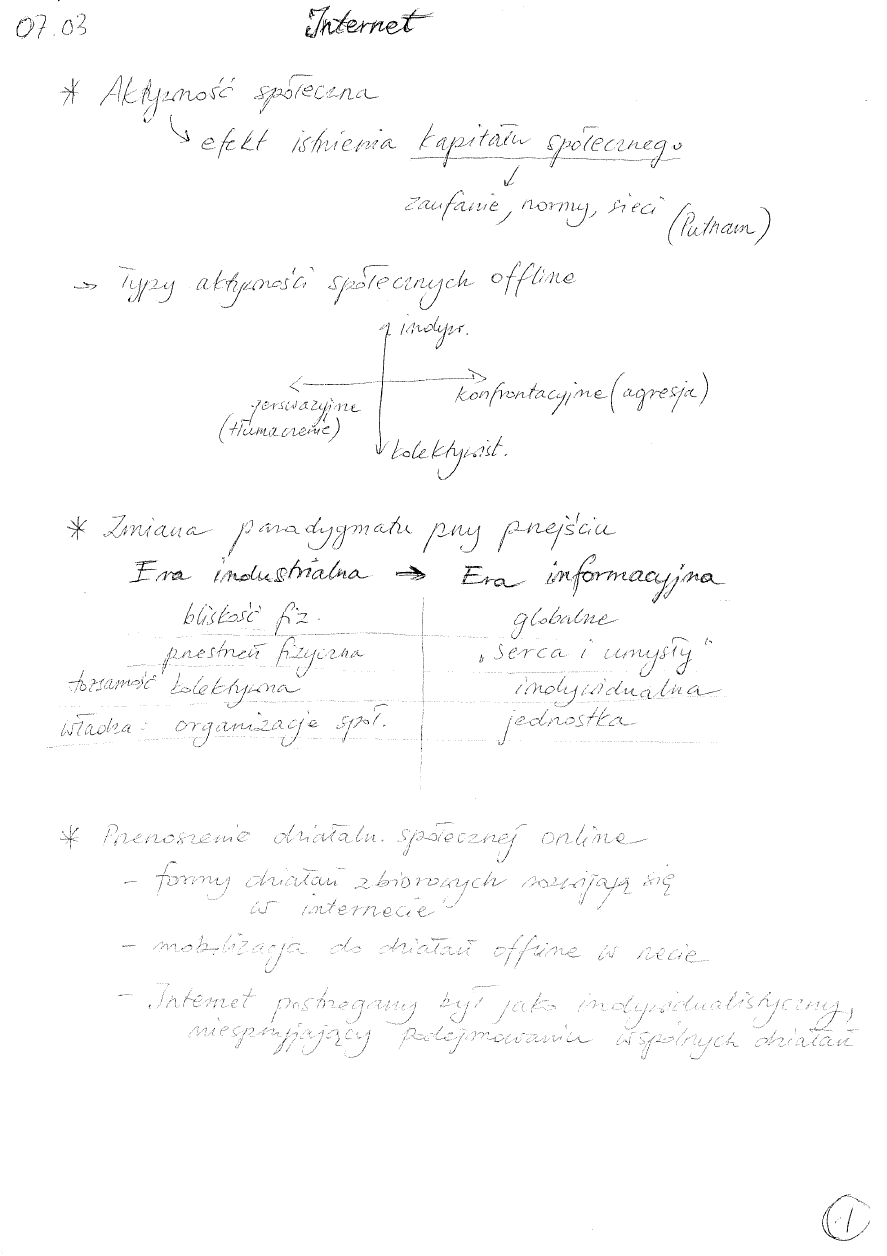 07.03 Internet
* Aktywność społeczna
↳ efekt istnienia kapitału społecznego
↓
zaufanie, normy, sieci (Putnam)
→ Typy aktywności społecznych offline
indyw.
perswazyjne konfrontacyjne (agresja)
(tłumaczenie)
kolektywist.
* Zmiana paradygmatu przy przejściu
Era industrialna → Era informacyjna
bliskość fiz. globalne
przestrzeń fizyczna „serca i umysły"
tożsamość kolektywna indywidualna
władza: organizacje społ. jednostka
* Przenoszenie działaln. społecznej online
- formy działań zbiorowych rozwijają się
w internecie
- mobilizacja do działań offline w necie
- Internet postrzegany był jako indywidualistyczny,
niesprzyjający podejmowaniu wspólnych działań
1